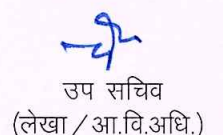 उप सचिव
(लेखा / आ.वि.अधि.)